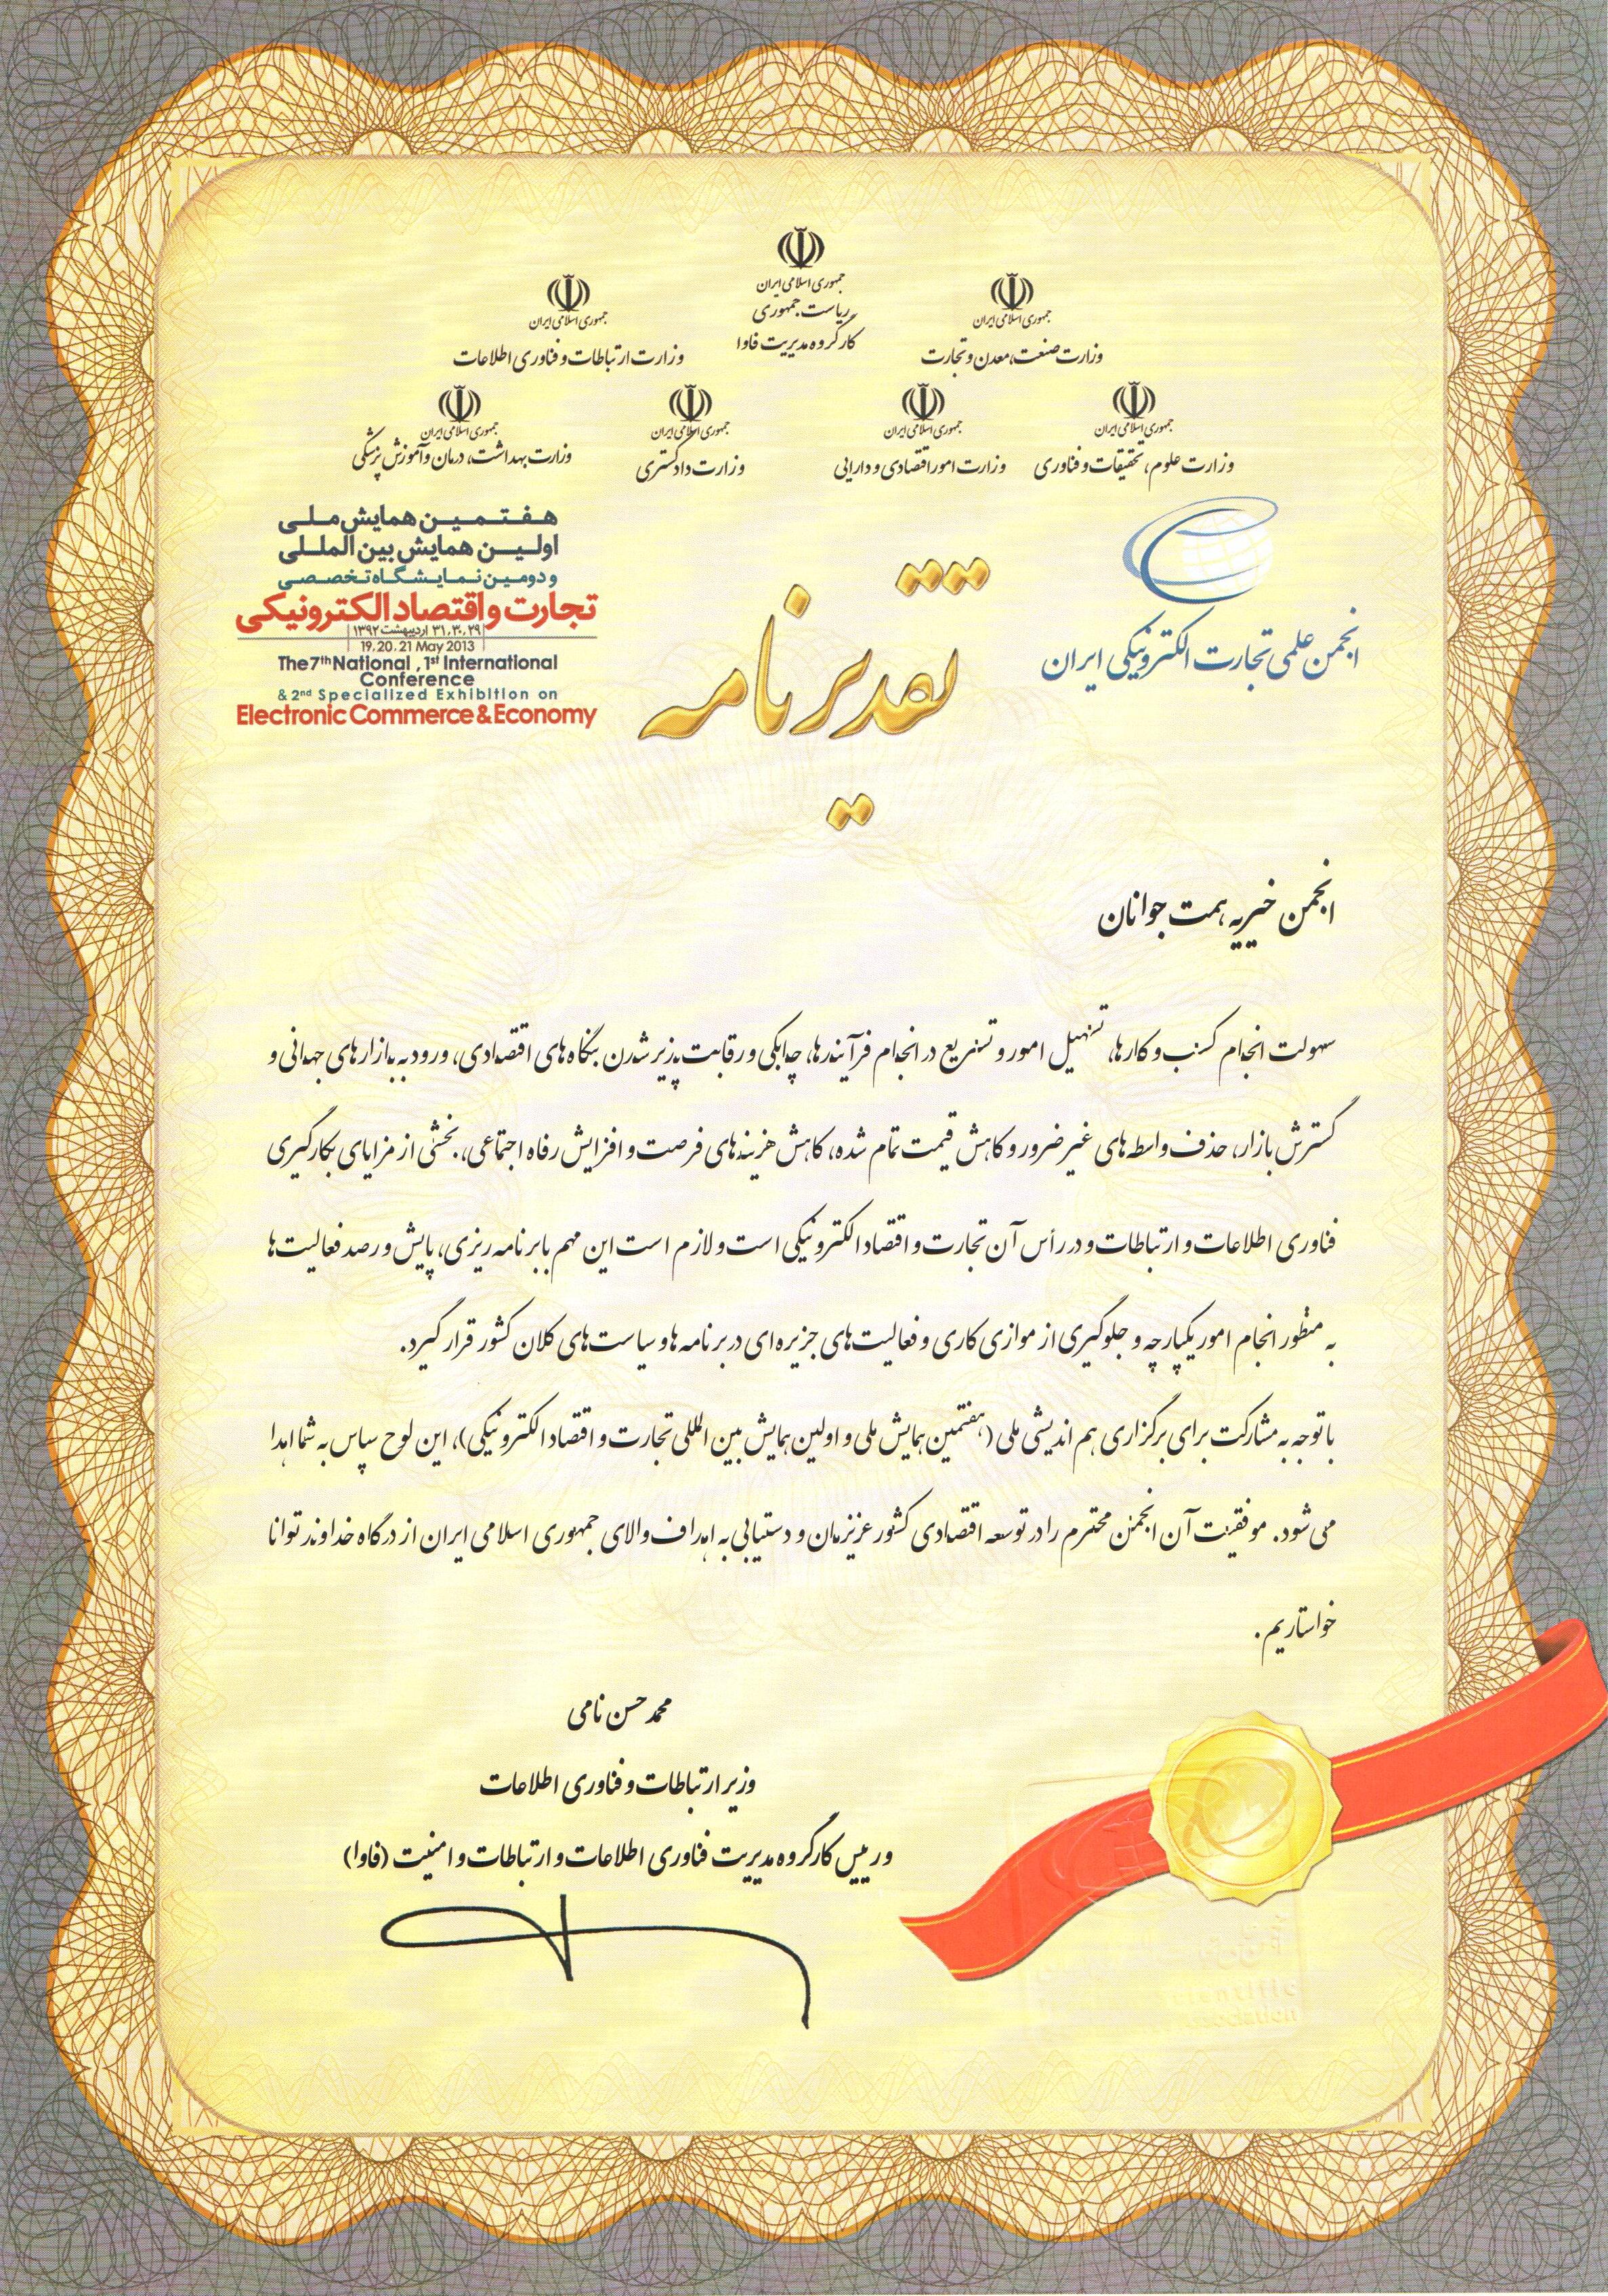 جمهوری اسلامی ایران
ریاست جمهوری
کارگروه مدیریت فاوا
جمهوری اسلامی ایران
وزارت صنعت، معدن و تجارت
جمهوری اسلامی ایران
وزارت ارتباطات و فناوری اطلاعات
جمهوری اسلامی ایران
وزارت علوم، تحقیقات و فناوری
جمهوری اسلامی ایران
وزارت امور اقتصادی و دارایی
جمهوری اسلامی ایران
وزارت دادگستری
جمهوری اسلامی ایران
وزارت بهداشت، درمان و آموزش پزشکی
انجمن علمی تجارت الکترونیکی ایران
تقدیرنامه
هفتمین همایش ملی
اولین همایش بین المللی
و دومین نمایشگاه تخصصی
تجارت و اقتصاد الکترونیکی
۲۹، ۳۰، ۳۱ اردیبهشت ۱۳۹۲
19. 20. 21 May 2013
The 7th National , 1st International
Conference
& 2nd Specialized Exhibition on
Electronic Commerce & Economy
انجمن خیریه همت جوانان
سهولت انجام کسب و کارها، تسهیل امور و تسریع در انجام فرآیندها، چابکی و رقابت پذیر شدن بنگاه های اقتصادی، ورود به بازارهای جهانی و
گسترش بازار، حذف واسطه های غیرضرور و کاهش قیمت تمام شده، کاهش هزینه های فرصت و افزایش رفاه اجتماعی، بخشی از مزایای بکارگیری
فناوری اطلاعات و ارتباطات و در رأس آن تجارت و اقتصاد الکترونیکی است و لازم است این مهم با برنامه ریزی، پایش و رصد فعالیت ها
به منظور انجام امور یکپارچه و جلوگیری از موازی کاری و فعالیت های جزیره ای در برنامه ها و سیاست های کلان کشور قرار گیرد.
با توجه به مشارکت برای برگزاری هم اندیشی ملی (هفتمین همایش ملی و اولین همایش بین المللی تجارت و اقتصاد الکترونیکی)، این لوح سپاس به شما اهدا
می شود. موفقیت آن انجمن محترم را در توسعه اقتصادی کشور عزیزمان و دستیابی به اهداف والای جمهوری اسلامی ایران از درگاه خداوند توانا
خواستاریم.
محمد حسن نامی
وزیر ارتباطات و فناوری اطلاعات
و رییس کارگروه مدیریت فناوری اطلاعات و ارتباطات و امنیت (فاوا)